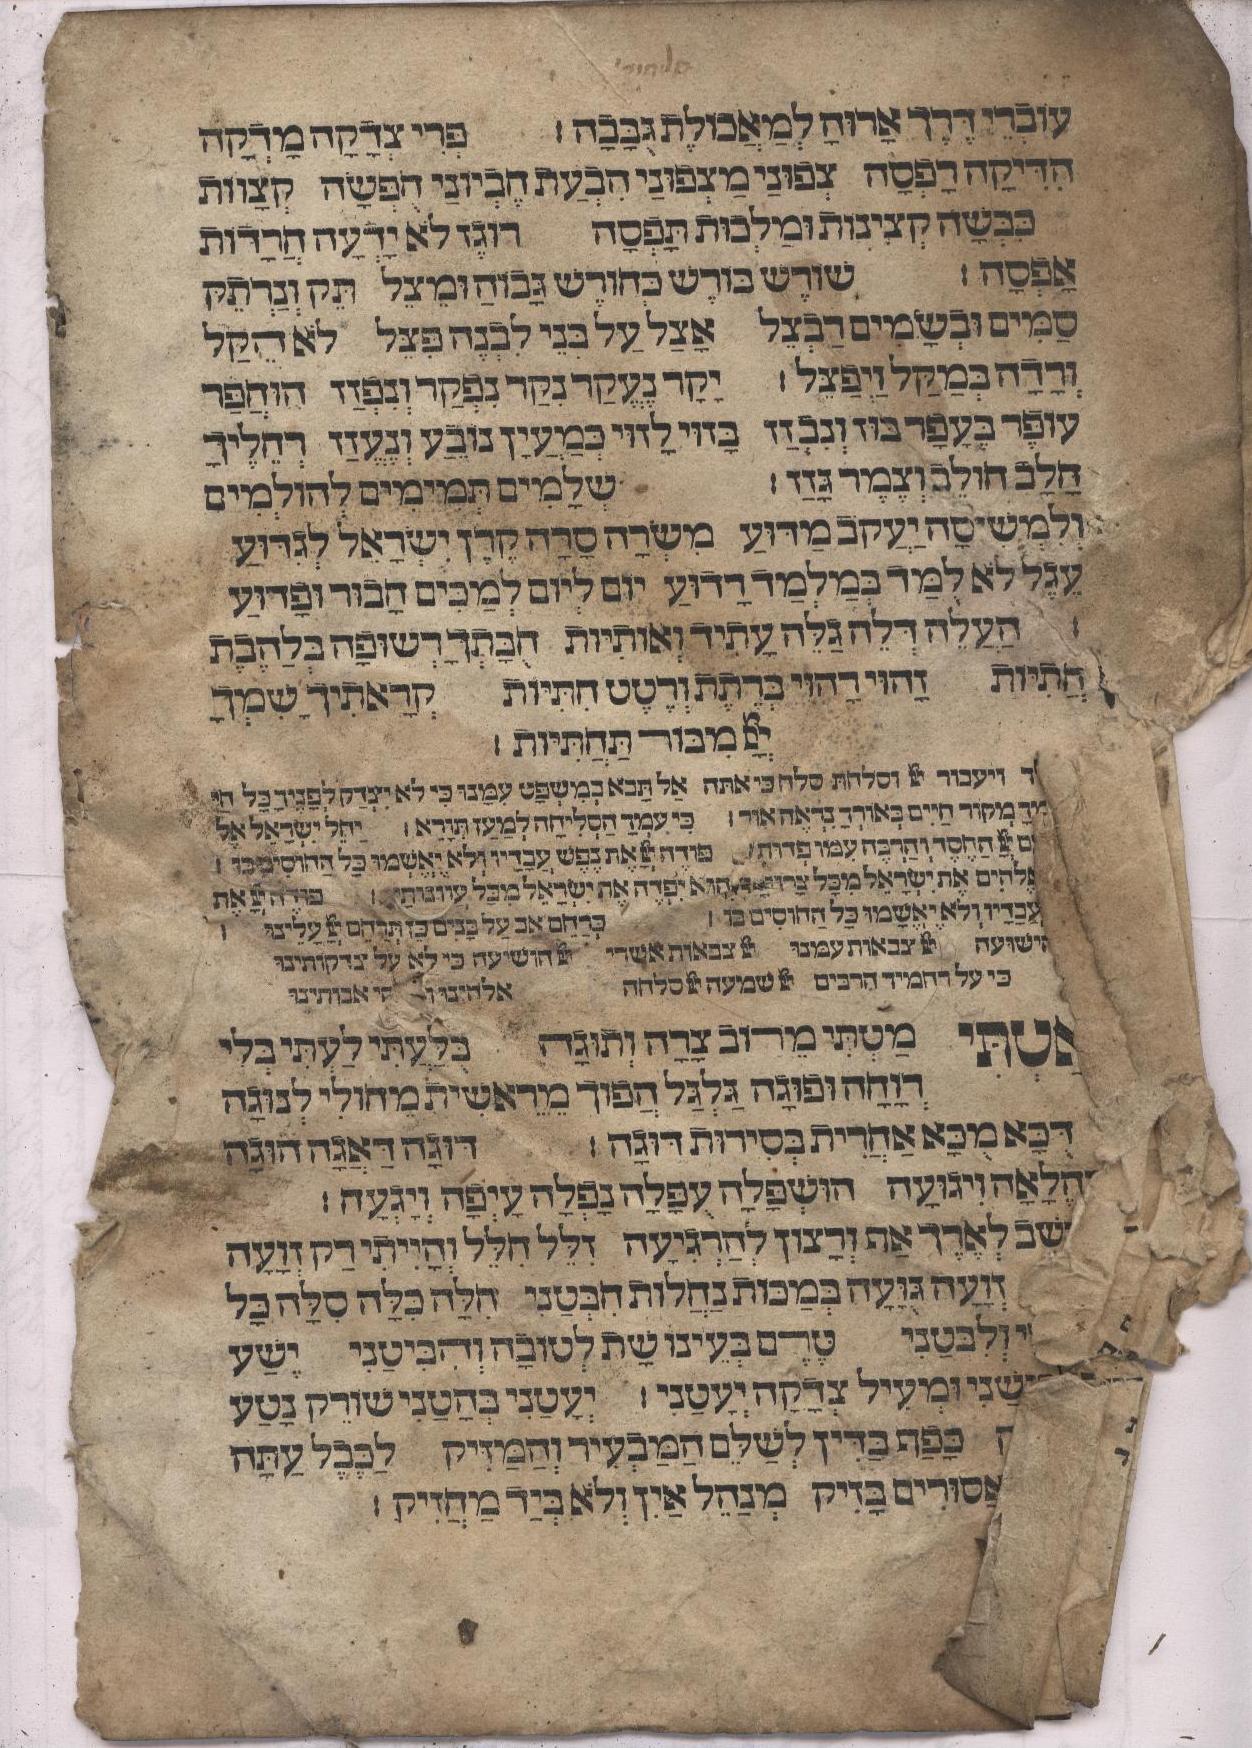 סליחות
עוֹבְרֵי דֶרֶךְ אָרוּהָ לְמַאֲכוֹלֶת גֻבָּבָה׃ פְּרִי צְדָקָה מָדְקָה
הִדִּיקָה רָפְסָה צְפוּנַי מַצְפּוּנַי הִבְעַת חֶבְיוֹנַי חֻפְשָׂה קְצָווֹת
כִּבְּשָׁה קְצִינוּת וּמַלְכוּת תָּפְסָה רוֹגֶז לֹא יָדְעָה חֲרָדוֹת
אָפְסָה׃ שׁוֹרֶשׁ כּוֹרֶשׁ כְּחוֹרֶשׁ גָּבוֹהַּ וּמֵצֵל תֵּק וְנַרְתֵּק
סַמִּים וּבְשָׂמִים רַבְצֵל אָצַל עַל בְּנֵי לִבְנֶה פִּצֵּל לֹא הֵקַל
וְרָדָה בְּמַקֵּל וַיְפַצֵּל׃ יָקָר נֶעֱקַר נִקַּר נִפְקַר וְנִפְזַז הוּחְפַּר
עוֹפֶר בֶּעָפָר בּוּז וְנִבְזַז בָּזוּי לָזוּי כְּמַעְיָן נוֹבֵעַ וְנֶעֱזַז רְחֵלֶיךָ
חֵלֶב חוֹלֵב וְצֶמֶר גָּזַז׃ שְׁלֵמִים תְּמִימִים לְהוֹלְמִים
וְלִמְשִׁיסָה יַעֲקֹב מַדּוּעַ מִשְׂרָה סָרָה קֶרֶן יִשְׂרָאֵל לְגִדּוּעַ
עֵגֶל לֹא לֻמַּד בְּמַלְמַד רָדוּעַ יוֹם לְיוֹם לְמַכִּים חָבוּר וּפָדוּעַ
׃ הַעֲלֵה דְּלֵה גַּלֵּה עָתִיד וְאוֹתִיּוֹת חִבָּתְךָ רְשׁוּפָה בְּלַהֶבֶת
חֲתִיּוֹת זָהוּי רָהוּי בְּרֶתֶת וְרֶטֶט חִתִּיּוֹת קְרָאתִיךָ שִׁמְךָ
יְיָ מִבּוֹר תַּחְתִּיּוֹת׃
ויעבור יְיָ וסלחת סלח כי אתה אַל תָּבֹא בְמִשְׁפָּט עִמָּנוּ כִּי לֹא יִצְדַּק לְפָנֶיךָ כָּל חי
מְקוֹר חַיִּים בְּאוֹרְךָ נִרְאֶה אוֹר׃ כִּי עִמְּךָ הַסְּלִיחָה לְמַעַן תִּוָּרֵא׃ יַחֵל יִשְׂרָאֵל אֶל
יְיָ הַחֶסֶד וְהַרְבֵּה עִמּוֹ פְדוּת׃ פּוֹדֶה יְיָ אֶת נֶפֶשׁ עֲבָדָיו וְלֹא יֶאְשְׁמוּ כָּל הַחוֹסִים בּוֹ׃
אֱלֹהִים אֶת יִשְׂרָאֵל מִכָּל צָרוֹתָיו׃ וְהוּא יִפְדֶּה אֶת יִשְׂרָאֵל מִכָּל עֲוֹנוֹתָיו׃ פּוֹדֶה יְיָ אֶת
עֲבָדָיו וְלֹא יֶאְשְׁמוּ כָּל הַחוֹסִים בּוֹ׃ כְּרַחֵם אָב עַל בָּנִים כֵּן תְּרַחֵם יְיָ עָלֵינוּ׃
הישועה יְיָ צבאות עמנו יְיָ צבאות אשרי יְיָ הושיעה כי לא על צדקותינו
כי על רחמיך הרבים יְיָ שמעה יְיָ סלחה אלהינו אבותינו
מַטְתִּי מֵרוֹב צָרָה וְתוּגָה בֻּלַּעְתִּי לַעְתִּי בְּלִי
רְוָחָה וּפוּגָה גַּלְגַּל הֲפוֹךְ מֵרֵאשִׁית מֵחוֹלִי לְנוּגָה
דֻּכָּא מֻכָּא אַחֲרִית בְּסִירוֹת דּוּגָה׃ דּוּגָה דַּאֲגָה הוּגָה
וִיגוּעָה הוּשְׁפָּלָה עֻפָּלָה נָפְלָה עָיְפָה וְיָגְעָה׃
לְאֶרֶךְ אַתְּ וְרָצוֹן לְהַרְגִּיעָה זִלֵּל חִלֵּל וְהָיִיתִי רַק זְוָעָה
זְוָעָה גֻּוָּעָה בְּמַכּוֹת נַחֲלוֹת חִבְּטַנִי חִלָּה כִּלָּה סִלָּה כָּל
וְלִבְּטַנִי טֶרֶם בְּעֵינוֹ שָׁת לְטוֹבָה וְהִבִּיטַנִי יֶשַׁע
וּמְעִיל צְדָקָה יְעָטַנִי׃ יְעָטַנִי בְּהָטַנִי שׂוֹרֵק נָטַע
כָּפַת בַּדִּין לְשַׁלֵּם הַמַּבְעִיר וְהַמַּזִּיק לַבֶּבֶל עַתָּה
אֲסוּרִים בָּזִיק מְנַהֵל אַיִן וְלֹא בְּיָד מַחֲזִיק׃